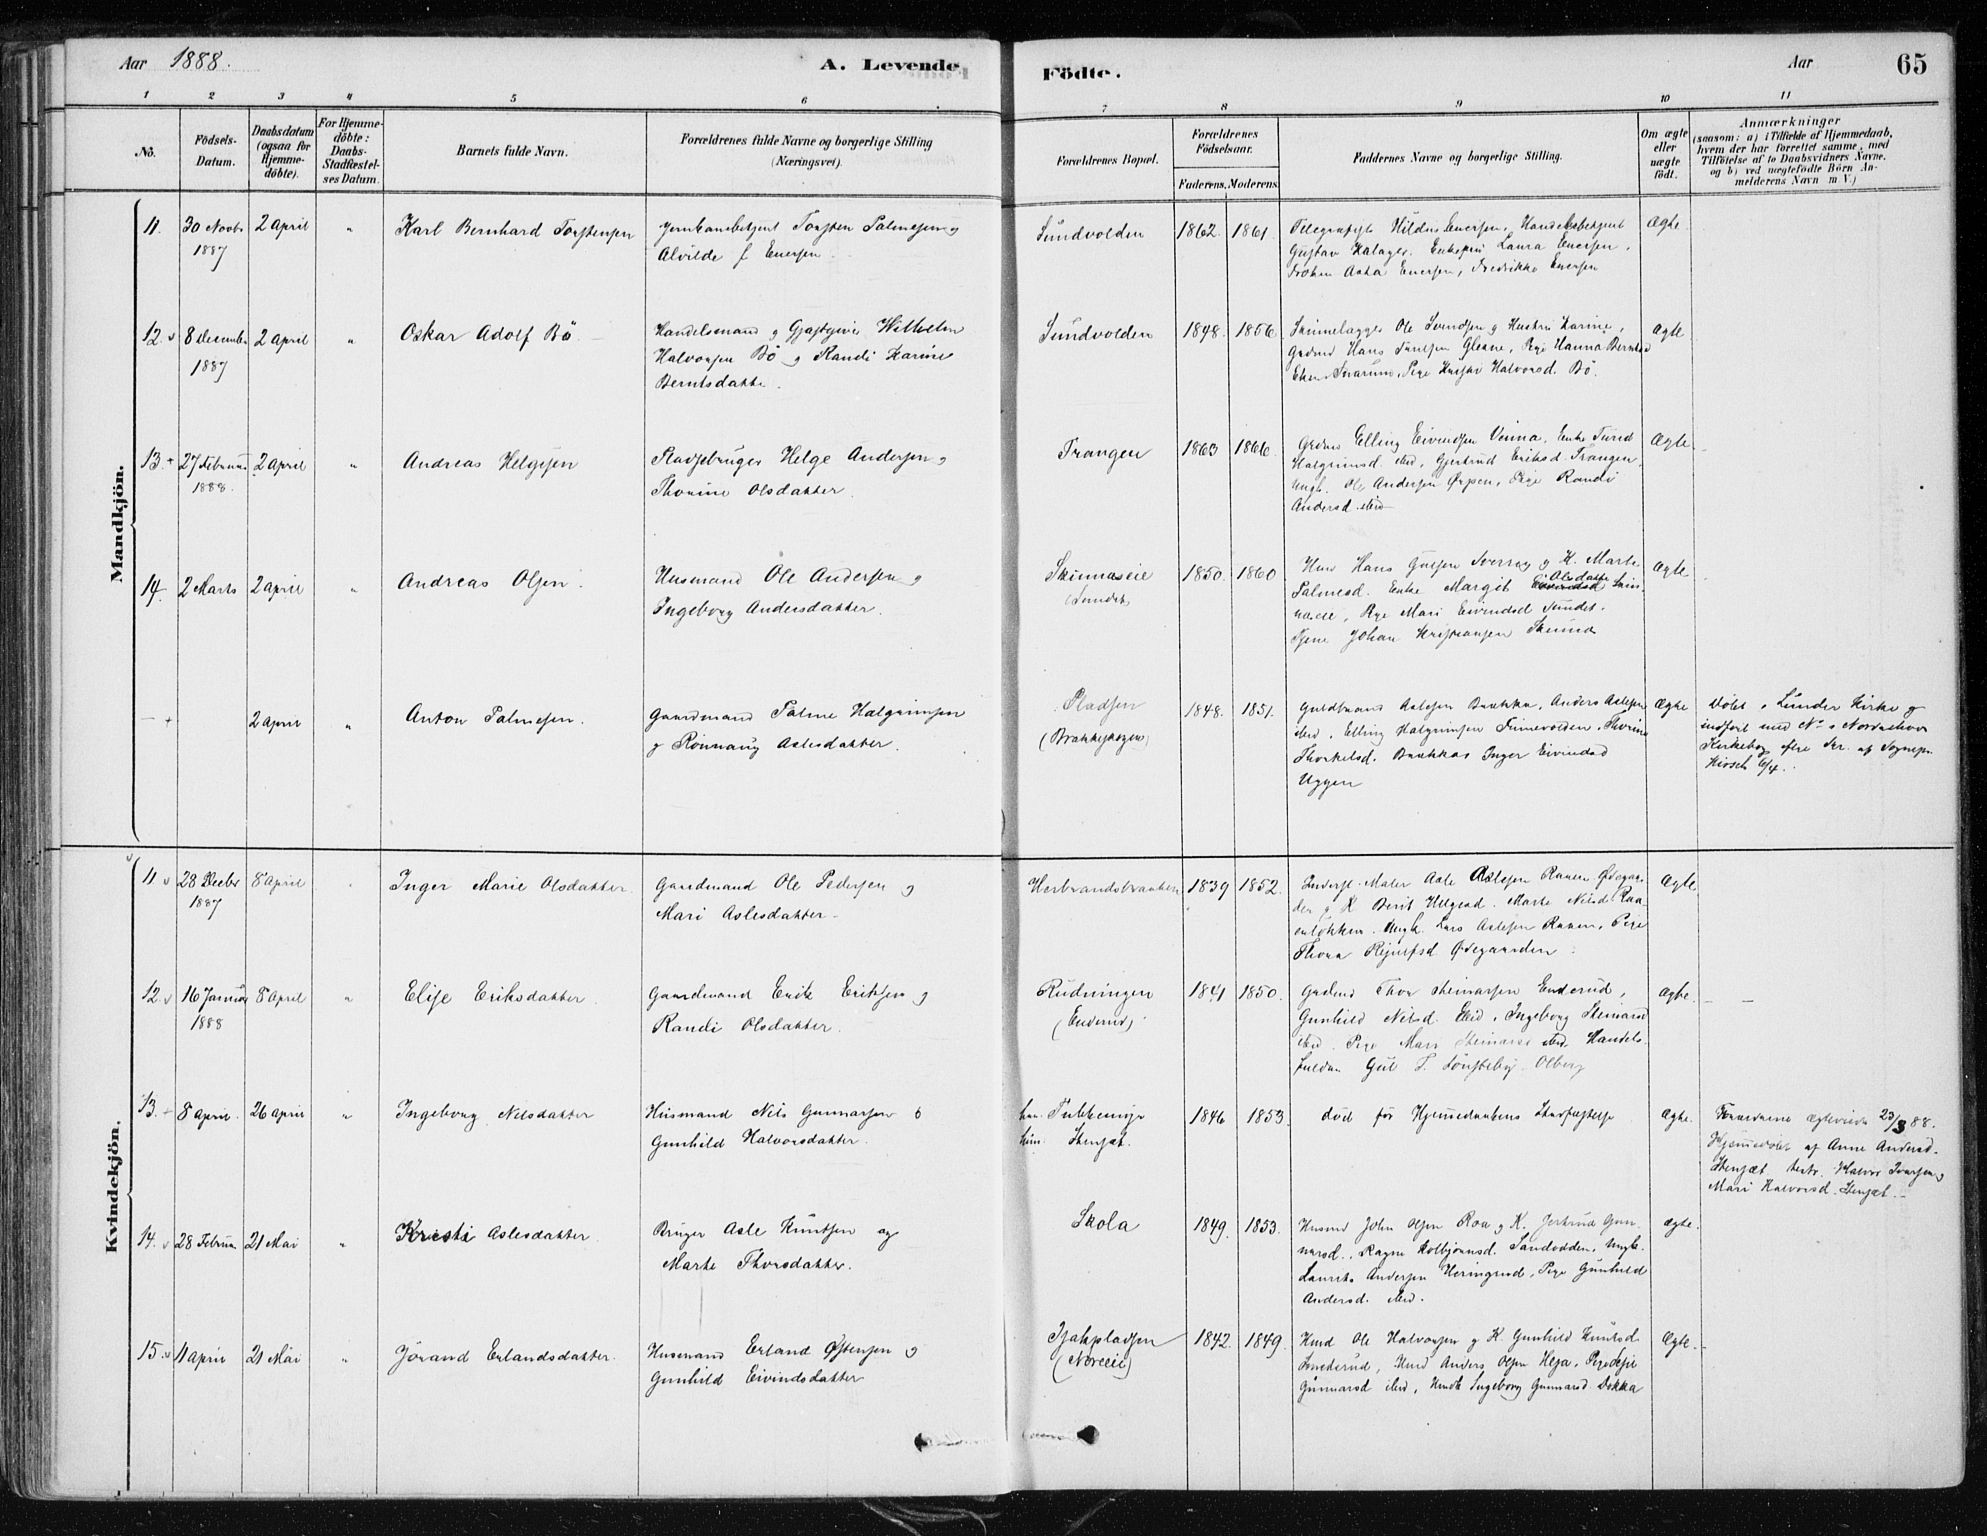 Aar 1888.
A. Levende Födte.
Aar
65
1 2 3 4 5 6 7 8 9 10 11
No.
Födsels-Datum.
Daabsdatum (ogsaa for Hjemme-döbte).
For Hjemme-döbte: Daabs-Stadfæstel-ses Datum.
Barnets fulde Navn.
Forældrenes fulde Navne og borgerlige Stilling (Næringsvei).
Forældrenes Bopæl.
Forældrenes Födselsaar.
Faderens. Moderens.
Faddernes Navne og borgerlige Stilling.
Om ægte eller uægte födt.
Anmærkninger
(saasom: a) i Tilfælde af Hjemmedaab,
hvem der har forrettet samme, med
Tilföielse af to Daabsvidners Navne,
og b) ved uægtefödte Börn An-
melderens Navn m. V.)
Mandkjön.
11. 30 Novb. 1887 2 April " Karl Bernhard Torstensen
Jernbanebetjent Torsten Palmesen og
Alvilde f Enersen
Sundvolden 1862. 1861.
Telegrafist Enersen, Handelsbetjent
Gustav Laura Enersen,
Fröken Enersen, Fredrikke Enersen
Ægte
12. 8 December 1887 2 April " Oskar Adolf Bö
Handelsmand og Gjæstgiver Wilhelm
Halvorsen Bö og Randi Karine
Berntsdatter.
Sundvolden 1848. 1856.
Ole Svendsen og Hustru Karine,
Grdmd Hans Glesne, Pige Hanna
Snarum, Pige Halvorsd. Bö.
Ægte
13. + 27 Februar 1888. 2 April " Andreas Helgesen
Pladsbruger Helge Andersen og
Thorine Olsdatter.
Trangen 1863 1866.
Grdmd Elling Eivindsen Vinna, Enke Turid
Halgrimsd. ibd, Gjertrud Eriksd Trangen,
Ungk. Ole Andersen Ørpen, Pige Randi
Andersd ibid
Ægte
14. 2 Marts 2 April " Andreas Olsen
Husmand Ole Andersen og
Ingeborg Andersdatter.
Skinnaseie
(Sundet) 1850. 1860
Hans og K. Marte
Palmesd. Enke Margit Olsdatter
Pige Mari Eivindsd Sundet.
Johan Kristiansen Skinna
Ægte
— + 2 April " Anton Palmesen.
Gaardmand Palme Halgrimsen
og Rönnaug Aslesdatter.
Pladsen
(Brækkeskogen) 1848. 1851.
Guldbrand Aslesen Brække, Anders Aslesen
ibid, Elling Halgrimsen Finnevolden, Thorine
Thorkelsd. Brække Inger Eivindsd
Uggen
Ægte
döbt i Lunder Kirke og
indfört med No i Norderhovs
Kirkebog efter Skr. af Sognepr.
6/4.
Kvindekjön.
11 28 Decbr 1887 8 April Inger Marie Olsdatter.
Gaardmand Ole Pedersen og
Mari Aslesdatter.
Herbrandsbraaten 1839 1852.
Maler Asle Aslesen Raaen Ødegaar-
den og K Berit Helgesd. Marte Nilsd Raa-
enløkken. Ungk. Lars Aslesen Raaen, Pige
Thora Ødegaarden
Ægte
12 16 Januar 1888 8 April " Elise Eriksdatter.
Gaardmand Erik Eriksen og
Randi Olsdatter.
Rudningen
(Enderud) 1841 1850.
Grdmd Thor Steinarsen Enderud,
Gunhild Nilsd. ibid, Ingeborg Steinarsd
ibid. Pige Mari Steinarsd ibid. Handels-
fuldm Gul T. Olberg
Ægte.
13. 8 April. 26 April " Ingeborg Nilsdatter
Husmand Nils Gunnarsen &
Gunhild Halvorsdatter.
han:
hun: Stensæt. 1846 1853.
död för Hjemmedaabens Stadfæstelse
Ægte.
Forældrene ægteviede 23/3 88.
Hjemmedöbt af Anne Andersd.
Stensæt. Halvor Ivarsen og
Mari Halvorsd. Stensæt.
14. 28 Februar 21 Mai " Kristi Aslesdatter.
Bruger Asle Knutsen og
Marte Thorsdatter.
Skola 1849. 1853.
Husmd John Olsen Roa og K. Jertrud Gun-
narsd., Ragne Kolbjörnsd. Sandodden, Ungk.
Laurits Andersen Heringrud, Pige Gunhild
Andersd. ibid.
ægte.
15. 11 April 21 Mai " Jörand Erlandsdatter.
Husmand Erland Østensen og
Gunhild Eivindsdatter
1842. 1849.
Husmd Ole Halvorsen og K. Gunhild Knutsd.
Husmd Anders Olsen Heja,
Gunnarsd ibid, Ingeborg Gunnarsd Dokka
Ægte.